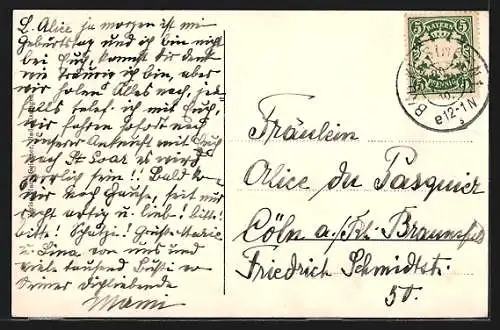 L. Alice ja morgen ist mei
Geburtstag und ich bin nicht
bei Euch, kannst dir denken
wie traurig ich bin, aber
wir holen Alles nach, jeden
falls telef. ich mit Euch,
wir fahren sofort nach
unserer Ankunft mit Euch
nach St Goar es wird
herrlich sein!! Bald
wir nach Hause, seid nur
recht artig u. lieb! bitte!
bitte! Grüße Marie
u. Lina von uns und
viele tausend Küsse von
Deiner Dichliebenden
Mami
BAYERN
5 5
PFENNIG
12-1 N
Fräulein
Alice du Pasquier
Cöln a./Rh. Braunsfeld
Friedrich Schmidtstr.
50.